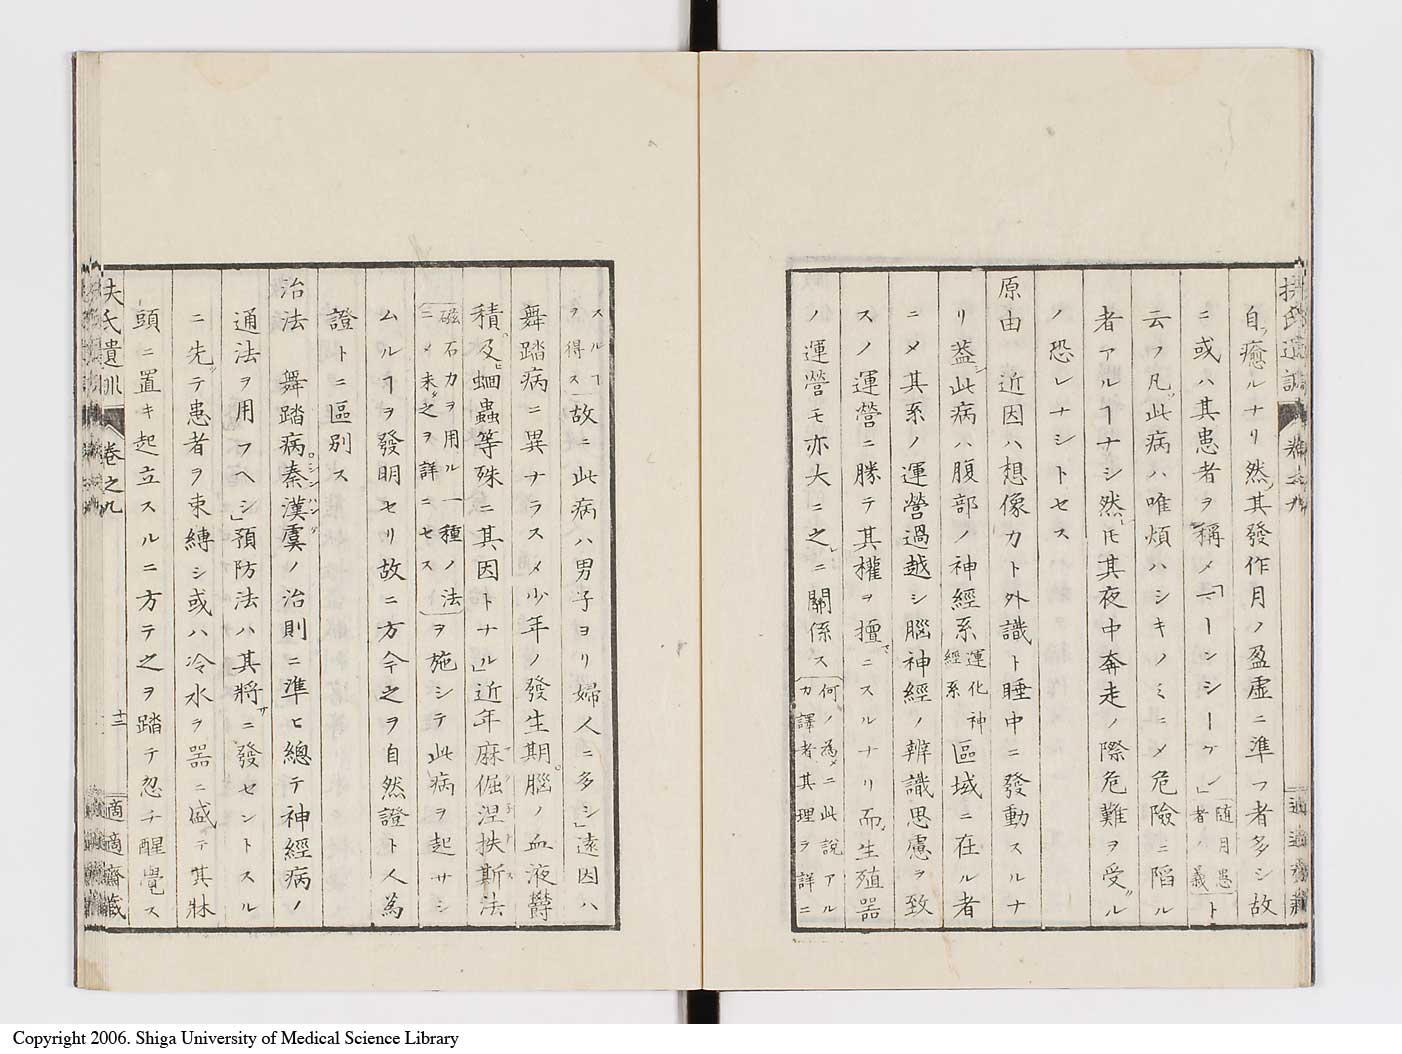 自ラ癒ルナリ然𪜈其發作月ノ盈虛ニ準フ者多シ故
ニ或ハ其患者ヲ稱〆「マーンシーグ」随月愚者ノ義ト
云フ凡ソ此病ハ唯煩ハシキノミニ〆危險ニ陷ル
者アルヿナシ然𪜈其夜中奔走ノ際危難ヲ受ル
ノ恐レナシトセス
原由 近因ハ想像力ト外識ト睡中ニ發動スルナ
リ蓋シ此病ハ腹部ノ神經系運化神經系區域ニ在ル者
ニ〆其系ノ運營過越シ腦神經ノ辨識思慮ヲ致
スノ運營ニ勝テ其權ヲ擅ニスルナリ而〆生殖器
ノ運營モ亦大ニ之レニ關係ス何ノ為メニ此說アルカ譯者其理ヲ詳ニ
スルヿヲ得ス故ニ此病ハ男子ヨリ婦人ニ多シ」遠因ハ
舞踏病ニ異ナラス〆少年ノ發生期。腦ノ血液鬱
積及ヒ蛔蟲等殊ニ其因トナル」近年麻倔涅扶斯法
磁石力ヲ用ル一種ノ法ニ〆未タ之ヲ詳ニセスヲ施シテ此病ヲ起サシ
ムルヿヲ發明セリ故ニ方今之ヲ自然證ト人為
證トニ區別ス
治法 舞踏病。秦漢虞シンハングノ治則ニ準ヒ總テ神經病ノ
通法ヲ用フヘシ」預防法ハ其將サニ發セントスル
ニ先テ患者ヲ束縛シ或ハ冷水ヲ器ニ盛テ其牀
頭ニ置キ起立スルニ方テ之ヲ踏テ忽チ醒覺ス
扶氏遺訓 卷之九 十二 適適齋藏